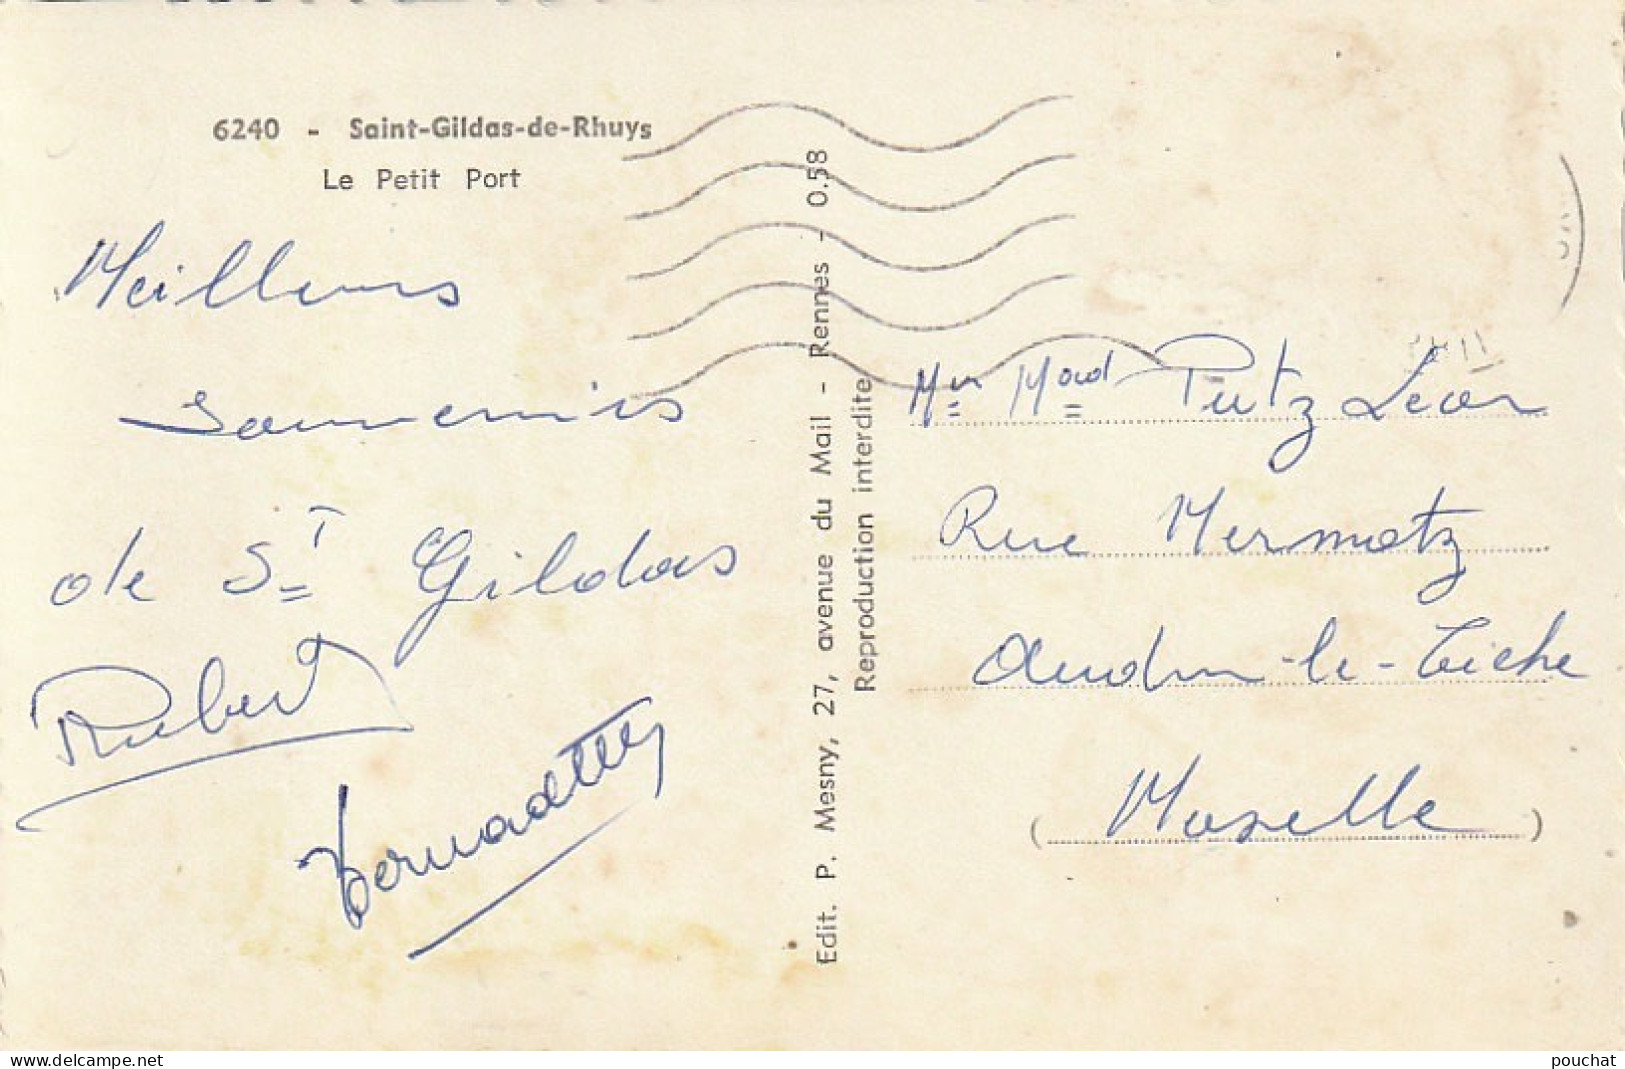 6240 - Saint-Gildas-de-Rhuys
Le Petit Port
Meilleurs
souvenirs
de St Gildas
Robert
Bernadette
Edit. P. Mesny, 27, avenue du Mail - Rennes - 0.58
Reproduction interdite
Mr Mad Putz Léon
Rue Mermoz
Audun-le-Tiche
(Moselle)
www.delcampe.net
pouchat